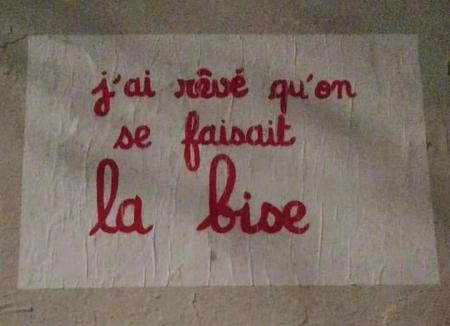 j'ai rêvé qu'on
se faisait
la bise